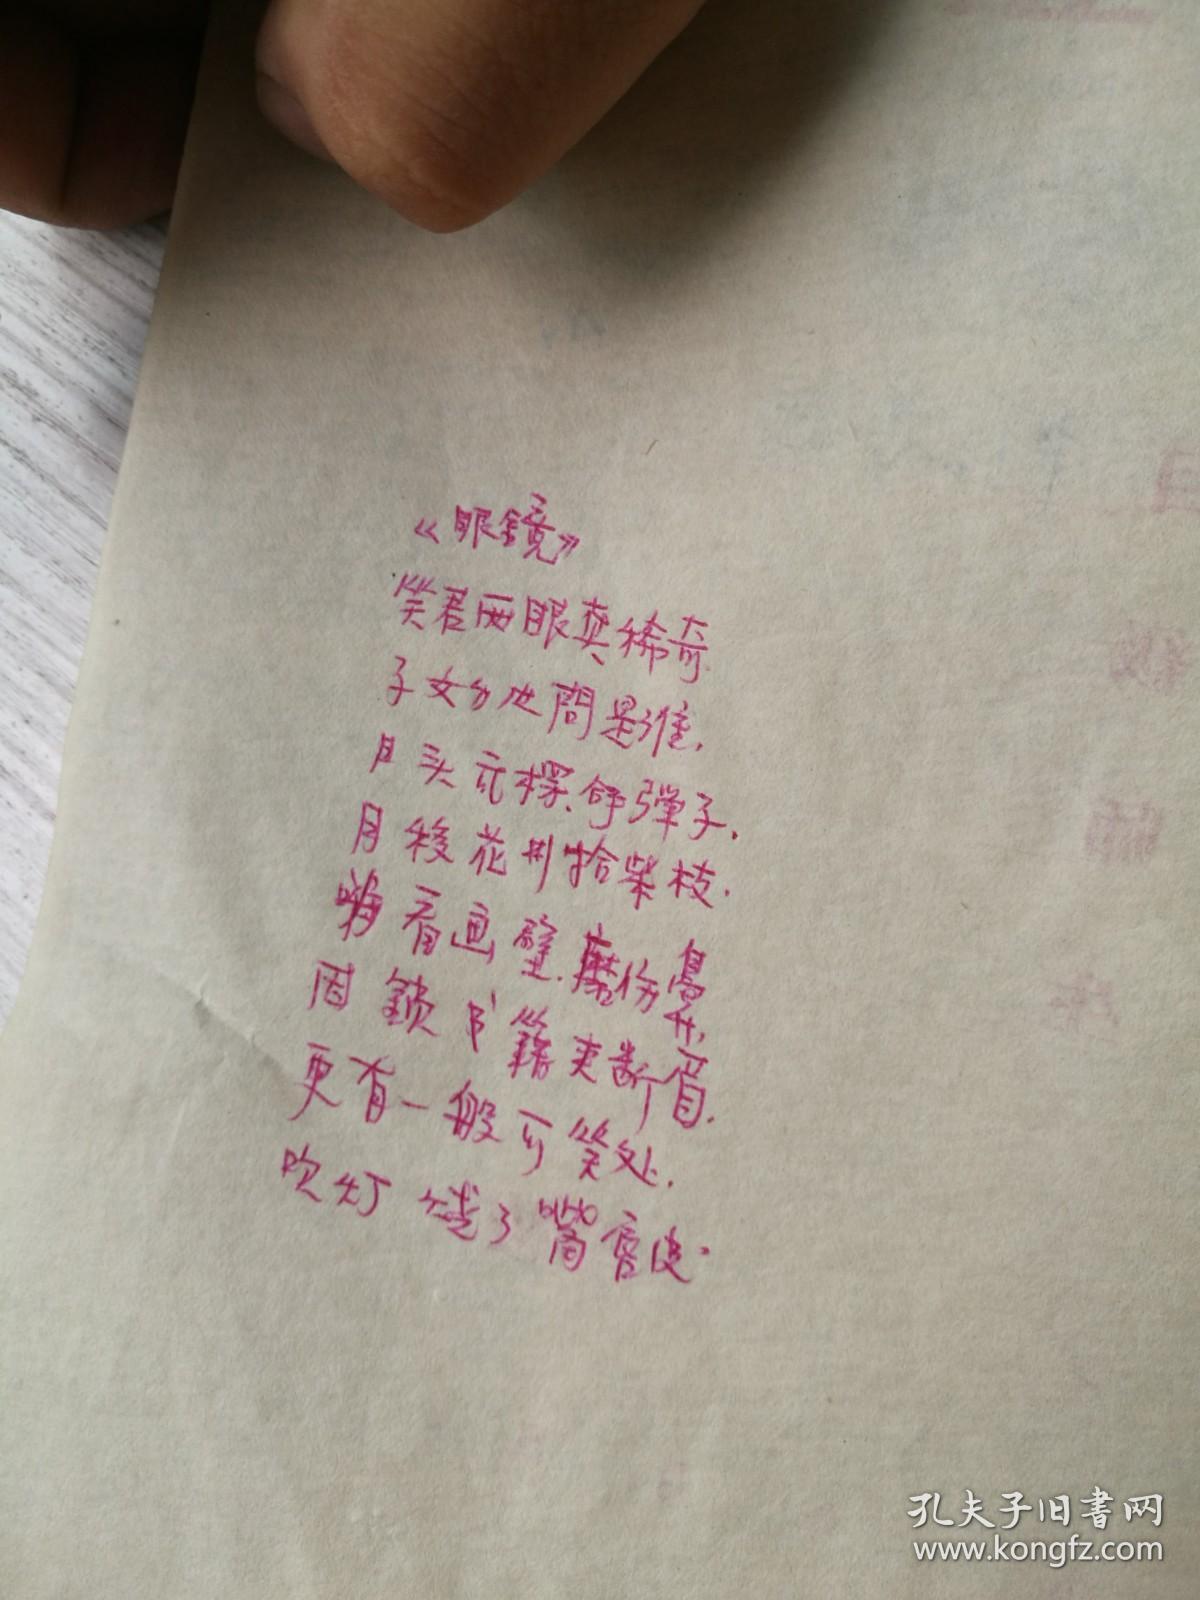 《眼镜》
笑君两眼真稀奇.
子女分世問是谁,
日头元探.舒弹子,
月移花荆拾柴枝.
嗨看画壁.磨伤鼻,
因鎖书籍夹断眉.
更有一般可笑处,
吹灯烧了嘴唇皮.
目
孔夫子旧書网
www.kongfz.com